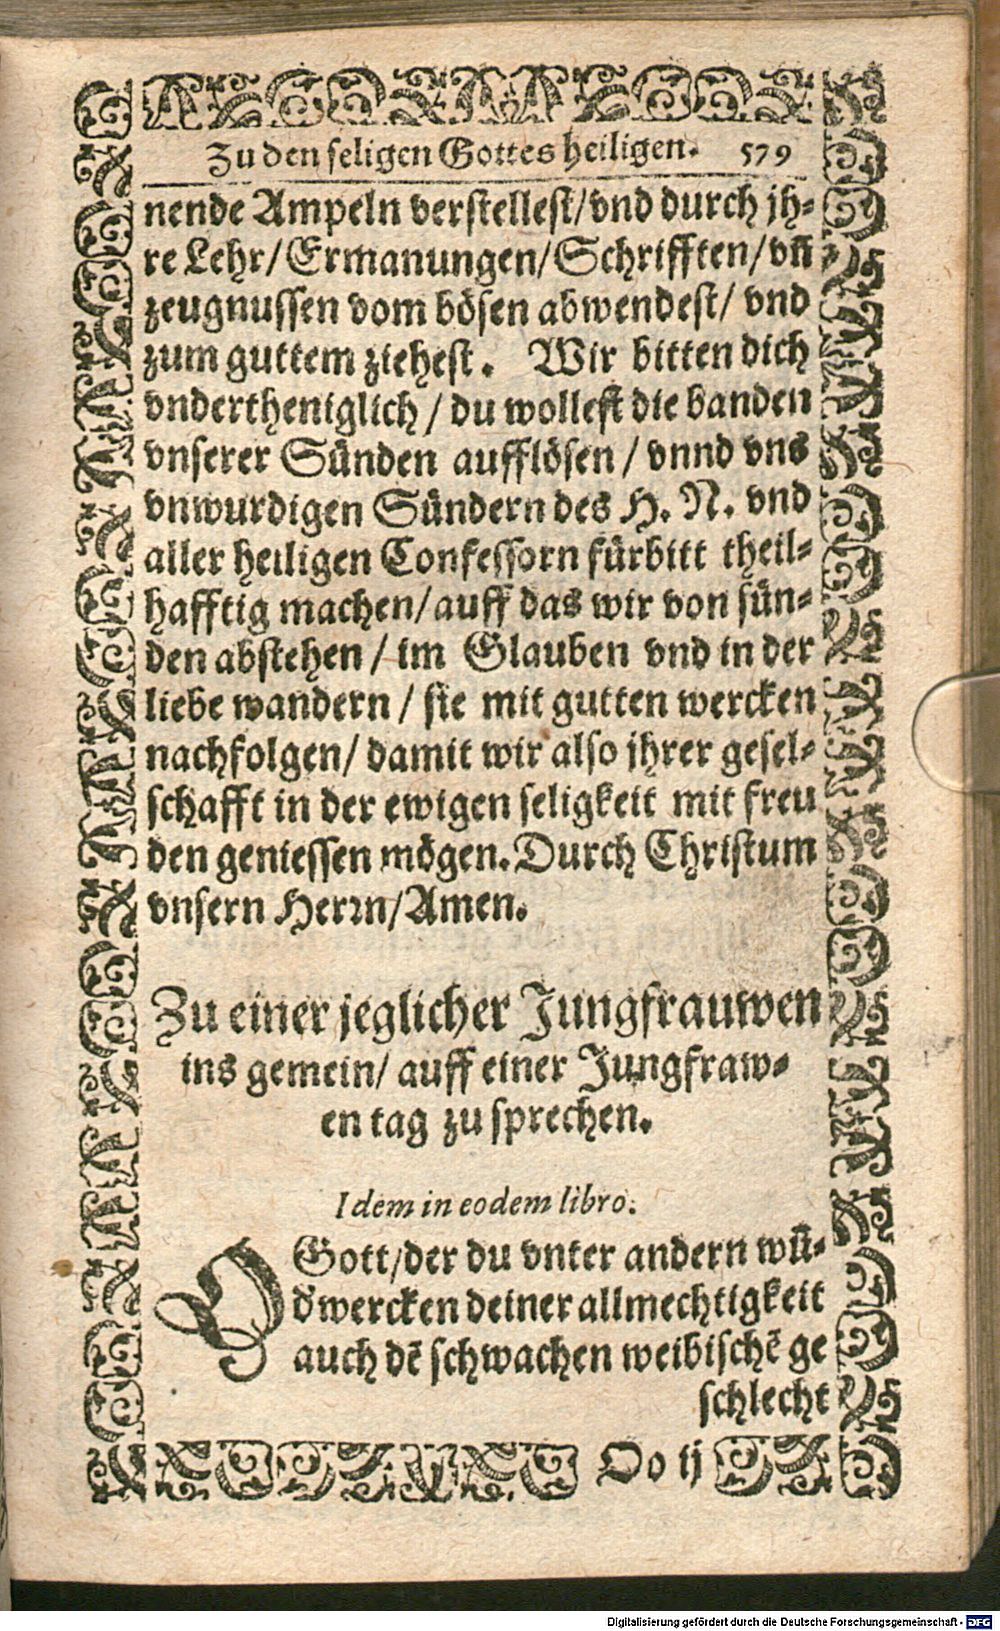 Zu den seligen Gottes heiligen. 579
nende Ampeln verstellest/vnd durch jh-
re Lehr/Ermanungen/Schrifften/vñ
zeugnussen vom bösen abwendest/ vnd
zum guttem ziehest. Wir bitten dich
vndertheniglich / du wollest die banden
vnserer Sünden aufflösen / vnnd vns
vnwurdigen Sündern des H. N. vnd
aller heiligen Confessorn fürbitt theil-
hafftig machen/auff das wir von sün-
den abstehen / im Glauben vnd in der
liebe wandern / sie mit gutten wercken
nachfolgen/ damit wir also jhrer gesel-
schafft in der ewigen seligkeit mit freu
den geniessen mögen. Durch Christum
vnsern Herrn/Amen.
Zu einer jeglicher Jungfrauwen
ins gemein/ auff einer Jungfraw-
en tag zu sprechen.
Idem in eodem libro.
O Gott/der du vnter andern wũ-
d' wercken deiner allmechtigkeit
auch dẽ schwachen weibischẽ ge
schlecht
Oo ij
Digitalisierung gefördert durch die Deutsche Forschungsgemeinschaft - DFG